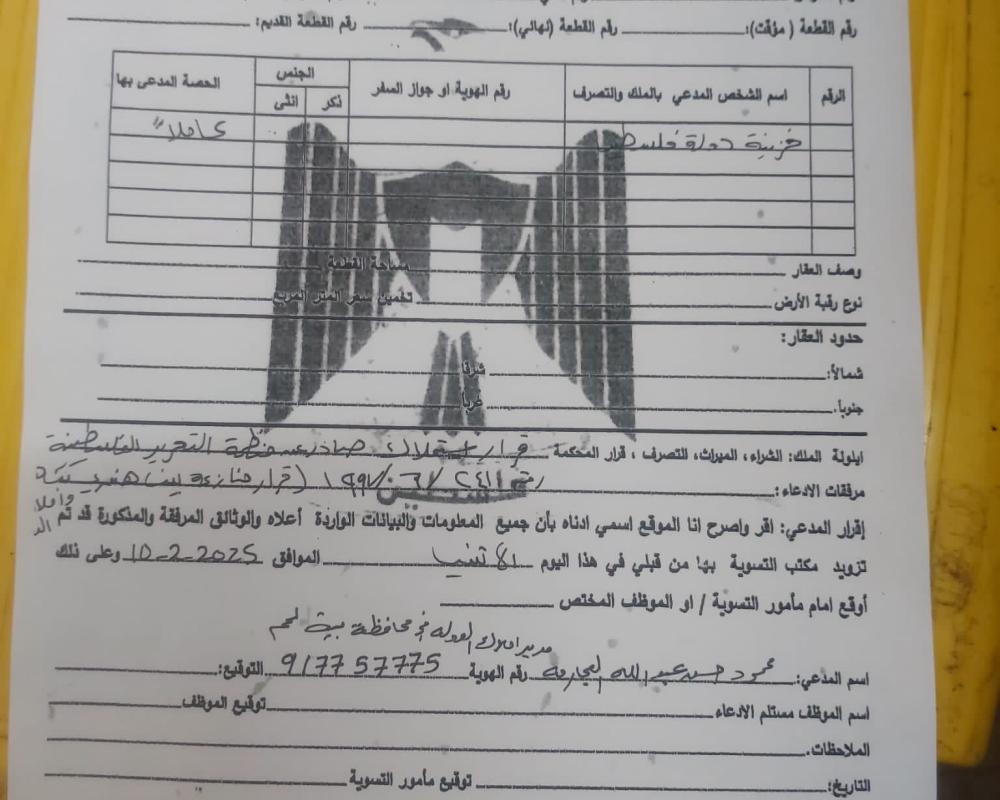 رقم القطعة ( مؤقت): رقم القطعة (نهائي): رقم القطعة القديم:
الرقم اسم الشخص المدعي بالملك والتصرف رقم الهوية او جواز السفر الجنس الحصة المدعى بها
ذكر انثى
خزينة دولة فلسطين كاملاً
وصف العقار مساحة القطعة
نوع رقبة الأرض تخمين سعر المتر المربع
حدود العقار:
شمالاً: شرقاً
جنوباً. غرباً
ايلولة الملك: الشراء، الميراث، التصرف ، قرار المحكمة قرار استملاك صادر عن منظمة التحرير الفلسطينية
مرفقات الادعاء: رقم (قرار منازعة
إقرار المدعي: اقر واصرح انا الموقع اسمي ادناه بأن جميع المعلومات والبيانات الواردة أعلاه والوثائق المرفقة والمذكورة قد تم
تزويد مكتب التسوية بها من قبلي في هذا اليوم الاثنين الموافق 10-2-2025 وعلى ذلك
أوقع امام مأمور التسوية / او الموظف المختص
مدير املاك الدولة في محافظة بيت لحم
اسم المدعي: محمود حسن عبد الله رقم الهوية 917757775 التوقيع:
اسم الموظف مستلم الادعاء توقيع الموظف
الملاحظات.
التاريخ: توقيع مأمور التسوية